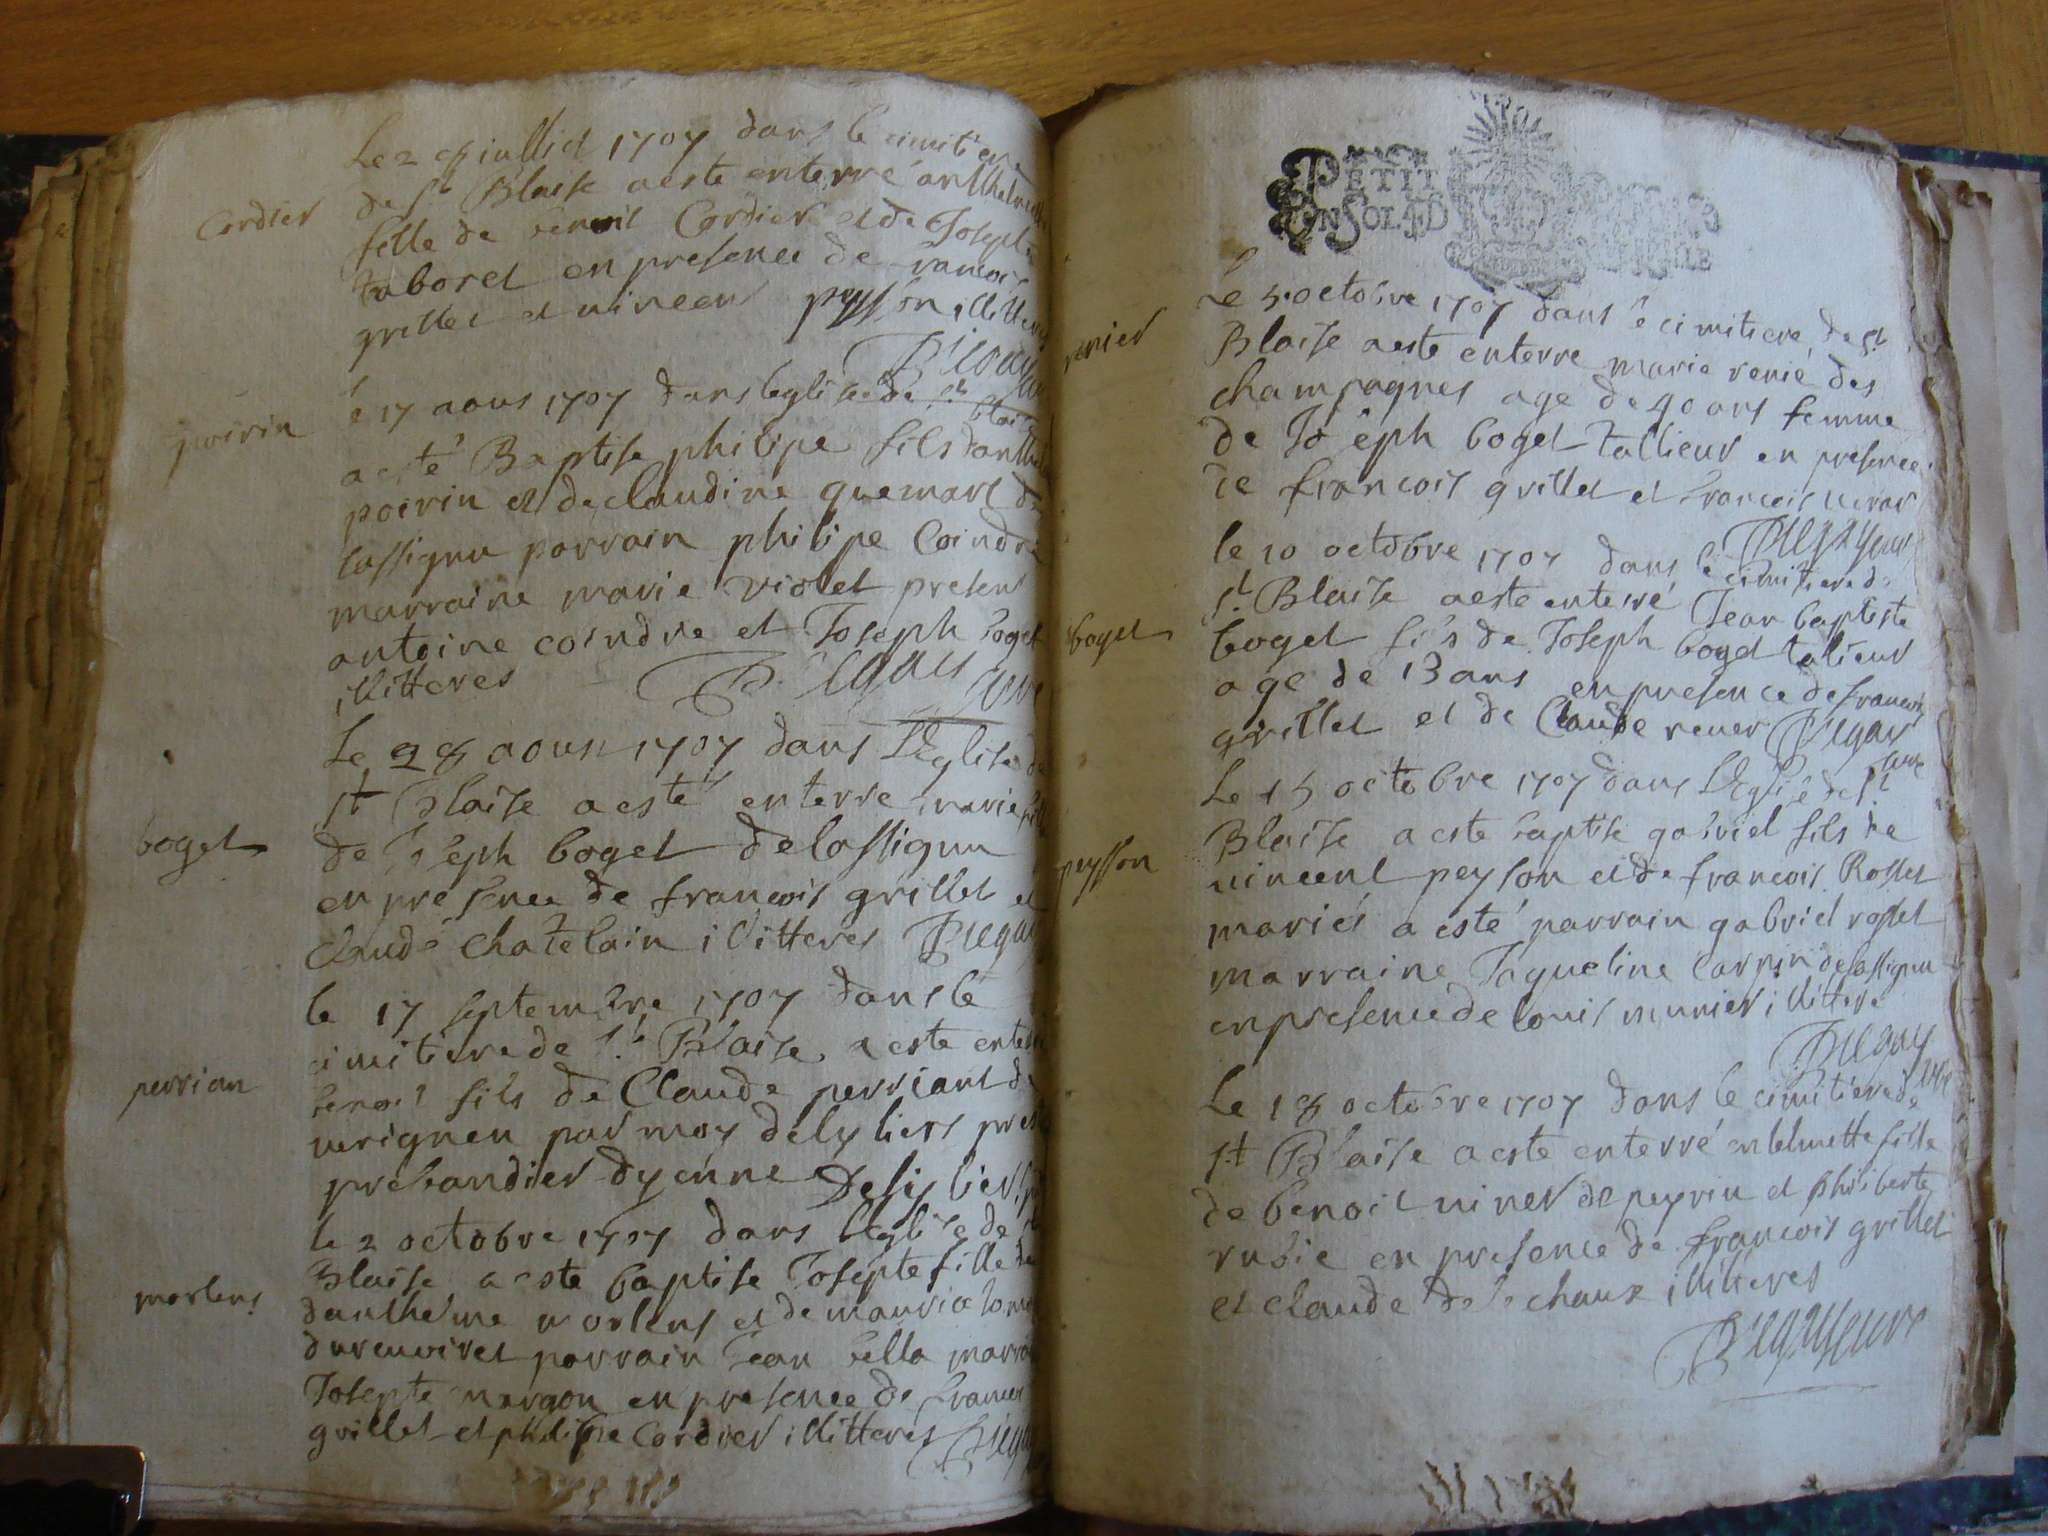 Le 28 iuillet 1707 dans le cimitiere
de st Blaise a esté enterré anthelmette
Cordier
fille de benoit Cordier et de Joseph
taboret en presence de francois
grillet et vincent peysson illitteres
poirin
le 17 aous 1707 dans leglise de st blaise
a esté Baptise philipe fils danthe
poirin et de claudine quemart de
lassignu parrain philipe Coindre
marraine marie violet presens
antoine coindre et Joseph boget
illitteres
Le 28 aous 1707 dans l'Eglise de
st Blaise a esté enterre marie fille
boget
de Joseph boget de lassignu
en presence de francois grillet et
claude chatelain illitteres
le 17 septembre 1707 dans le
cimitiere de st Blaise a este enterre
perrian
benoit fils de Claude perriant de
verigneu par moy delyliers pres
prebandier dyenne Delyliers
le 2 octobre 1707 dans l'eglise de st
Blaise a este baptise Josepte fille de
morlens
danthelme morlens et de mauricia
parrain Jean bella marraine
Josepte margon en presence de francois
grillet et philipe Cordier illitteres
PETIT
UN SOL 4 D
Le 5 octobre 1707 dans le cimitiere de st
renier
Blaise a este enterre marie renie des
champagnes age de 40 ans femme
de Joseph boget tallieur en presence
de francois grillet et francois
le 10 octobre 1707 dans le cimitiere de
st Blaise a este enterré Jean baptiste
boget
boget fils de Joseph boget talieur
age de 13 ans en presence de francois
grillet et de Claude
Le 15 octobre 1707 dans l'Eglise de st
Blaise a este baptise gabriel fils de
peysson
vincent peyson et de francois Rosset
mariés a esté parrain gabriel rosset
marraine Jaqueline carrin de lassignu
en presence de louis munier illittere
Le 18 octobre 1707 dans le cimitiere de
st Blaise a este enterré entelmette fille
de benoit viner de peyrieu et philiberte
rubie en presence de francois grillet
et claude de lechaux illitteres